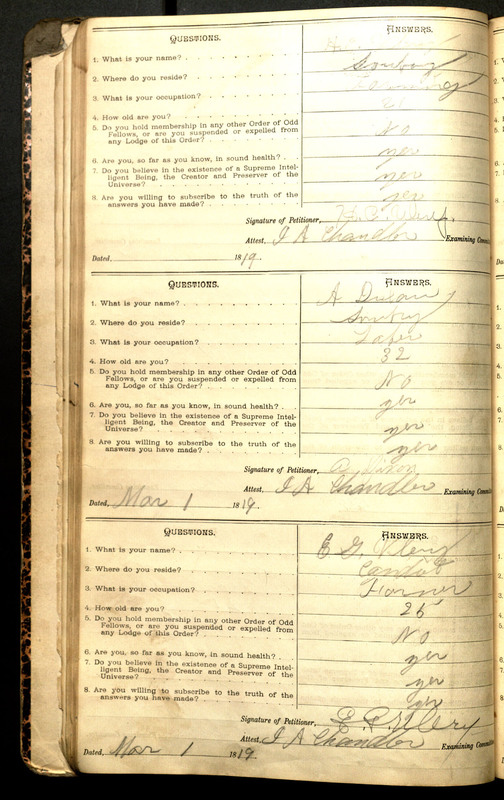 QUESTIONS. ANSWERS.
1. What is your name?
2. Where do you reside?
3. What is your occupation?
4. How old are you?
5. Do you hold membership in any other Order of Odd
Fellows, or are you suspended or expelled from
any Lodge of this Order? No
6. Are you, so far as you know, in sound health? yes
7. Do you believe in the existence of a Supreme Intel-
ligent Being, the Creator and Preserver of the
Universe? yes
8. Are you willing to subscribe to the truth of the
answers you have made? yes
Signature of Petitioner,
Attest, I A Chandler Examining
Dated, 1819.
QUESTIONS. ANSWERS.
1. What is your name? A
2. Where do you reside?
3. What is your occupation?
4. How old are you? 32
5. Do you hold membership in any other Order of Odd
Fellows, or are you suspended or expelled from
any Lodge of this Order? No
6. Are you, so far as you know, in sound health? yes
7. Do you believe in the existence of a Supreme Intel-
ligent Being, the Creator and Preserver of the
Universe? yes
8. Are you willing to subscribe to the truth of the
answers you have made? yes
Signature of Petitioner,
Attest, I A Chandler Examining
Dated, Mar 1 1819.
QUESTIONS. ANSWERS.
1. What is your name? E G
2. Where do you reside?
3. What is your occupation? Farmer
4. How old are you? 25
5. Do you hold membership in any other Order of Odd
Fellows, or are you suspended or expelled from
any Lodge of this Order? No
6. Are you, so far as you know, in sound health? yes
7. Do you believe in the existence of a Supreme Intel-
ligent Being, the Creator and Preserver of the
Universe? yes
8. Are you willing to subscribe to the truth of the
answers you have made? yes
Signature of Petitioner,
Attest, I A Chandler Examining
Dated, Mar 1 1819.